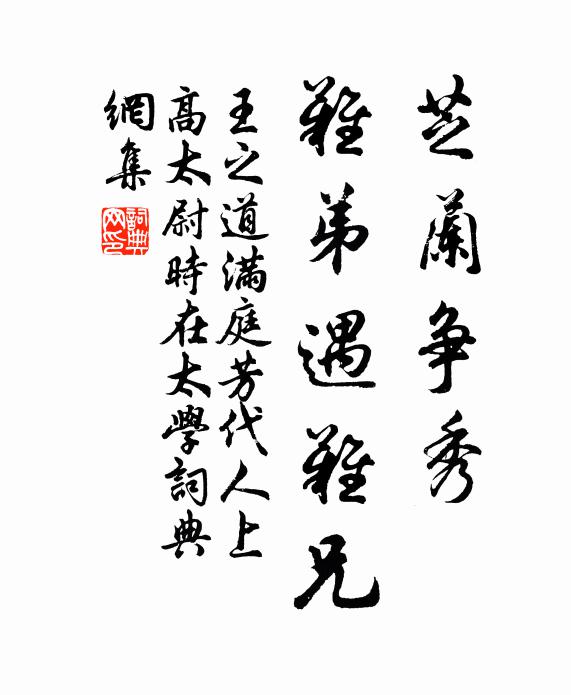 芝蘭争秀
難弟遇難兄
王之道滿庭芳代人上
高太尉時在太學詞典
網集
詞典网印